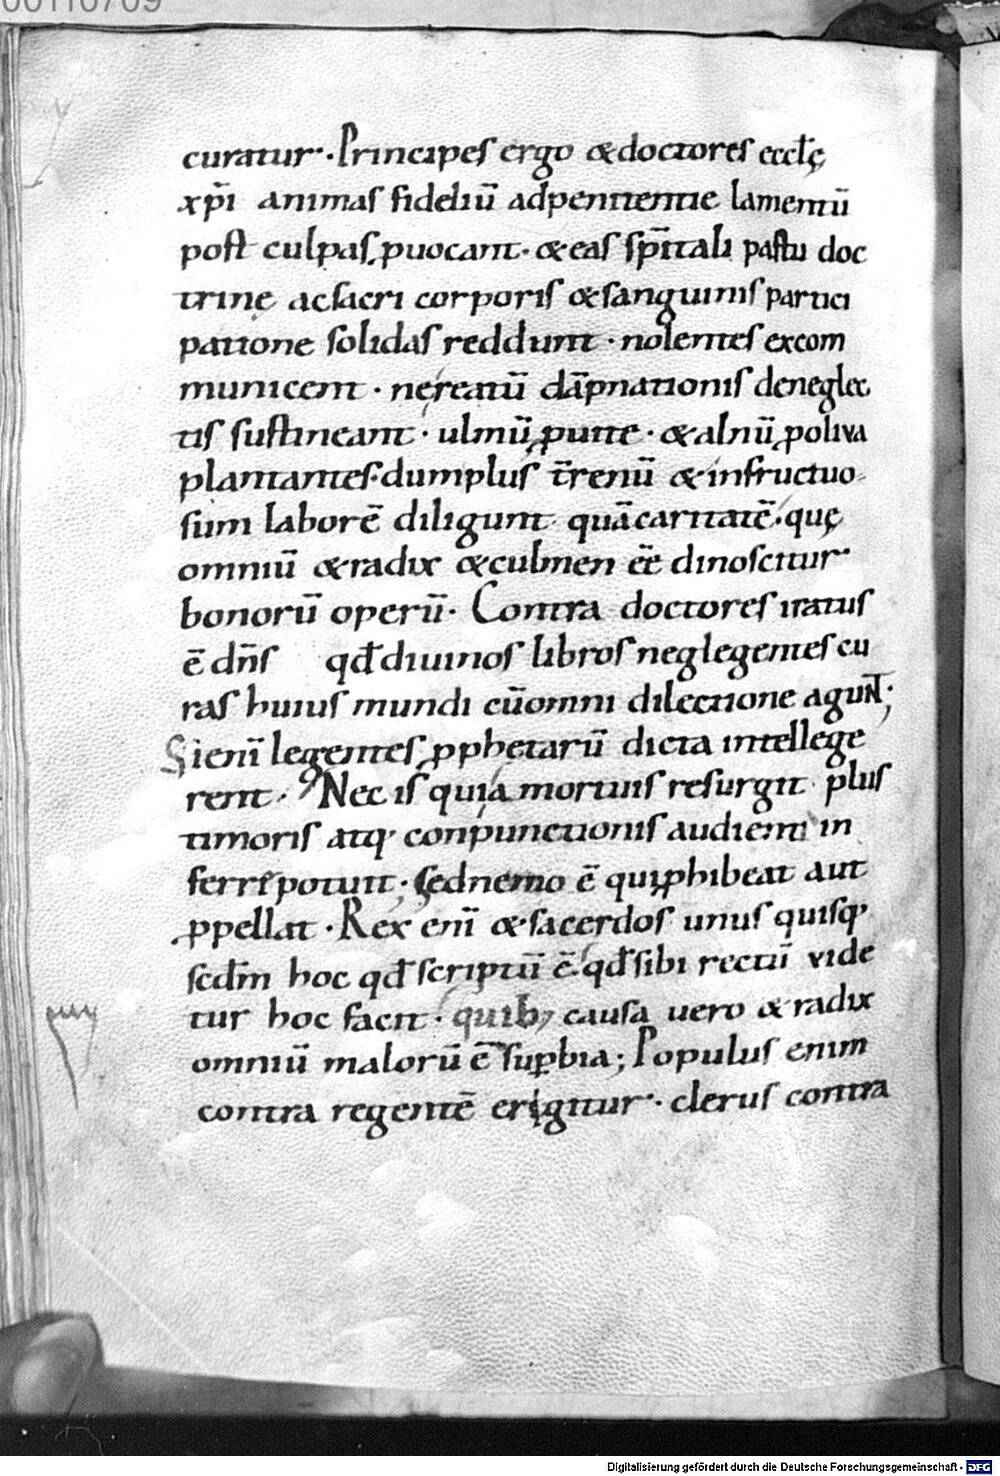 00110709
curatur. Principes ergo & doctores eccłę
xp̄i animas fideliū ad penitentie lamentū
post culpas puocant. & eas sp̄itali pastu doc
trinę ac sacri corporis & sanguinis partici
patione solidas reddunt. nolentes excom
municent. ne reatū dāpnationis de neglec
tis sustineant. ulmū ꝓ uirte. & alnū ꝓ oliva
plantantes. dum plus t̄renū & infructuo
sum laborē diligunt quā caritatē. quę
omniū & radix & culmen ēē dinoscitur
bonorū operū. Contra doctores iratus
ē dn̄s qđ diuinos libros neglegentes cu
ras huius mundi cū omni dilectione agunt;
Si enī legentes ꝓphetarū dicta intellege
rent. Nec is quia mortuis resurgit plus
timoris atq; conpunctionis audienti in
ferre potuit. sed nemo ē qui ꝓhibeat aut
ꝓpellat. Rex enī & sacerdos unus quisq;
scđm hoc qđ scriptū ē. qđ sibi rectū vide
tur hoc facit. quib; causa uero & radix
omniū malorū ē suꝑbia; Populus enim
contra regentē erigitur. clerus contra
Digitalisierung gefördert durch die Deutsche Forschungsgemeinschaft - DFG